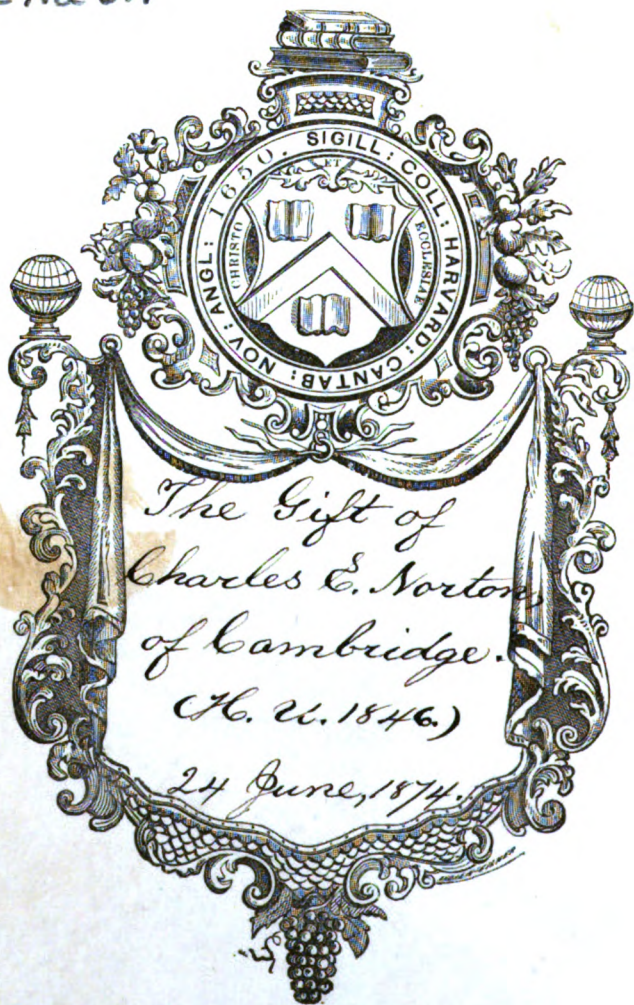 SIGILL: COLL: HARVARD: CANTAB: NOV: ANGL: 1650.
CHRISTO
ET
ECCLESIAE
The Gift of
Charles E. Norton,
of Cambridge.
(H. U. 1846.)
24 June, 1874.